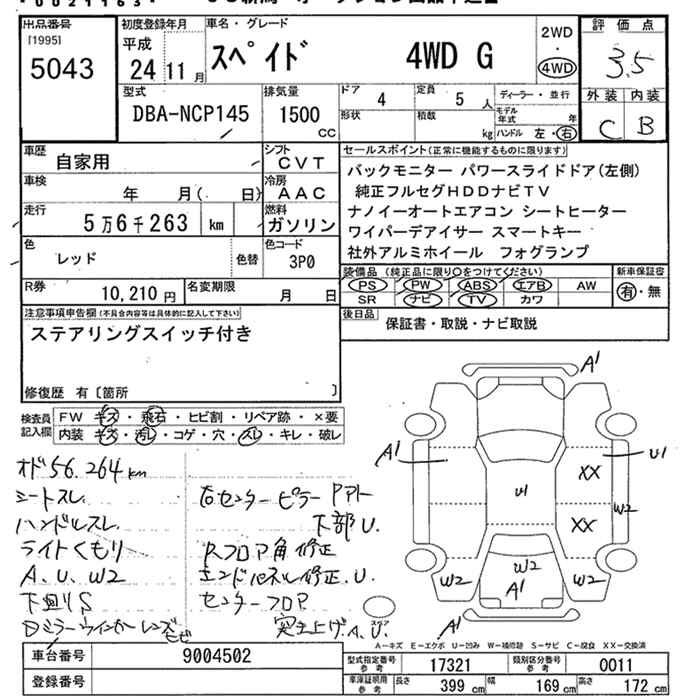 出品番号
[1995]
5043
初度登録年月
平成
24 11月
車名・グレード
スペイド 4WD G
2WD
・
4WD
評価点
3.5
外装 内装
C B
型式
DBA-NCP145
排気量
1500
CC
ドア
4
定員
5 人
ディーラー・並行
形状
積載
kg
モデル年式 年
ハンドル 左・右
車歴
自家用
シフト
CVT
車検
年 月( 日)
冷房
AAC
走行
5万6千263 km
燃料
ガソリン
色
レッド
色替
色コード
3P0
R券
10,210 円
名変期限
月 日
セールスポイント(正常に機能するものに限ります)
バックモニター パワースライドドア(左側)
純正フルセグHDDナビTV
ナノイーオートエアコン シートヒーター
ワイパーデアイサー スマートキー
社外アルミホイール フォグランプ
装備品(純正品に限り○をつけてください)
PS PW ABS エアB AW
SR ナビ TV カワ
新車保証書
有・無
後日品
保証書・取説・ナビ取説
注意事項申告欄(不具合内容等は具体的に記入して下さい)
ステアリングスイッチ付き
修復歴 有〔箇所 〕
検査員記入欄
FW キズ・飛石・ヒビ割・リペア跡・×要
内装 キズ・汚れ・コゲ・穴・スレ・キレ・破レ
オド56.264km
シートスレ
ハンドルスレ
ライトくもり
A、U、W2
下廻りS
Dミラーウインカーレンズヒビ
右センターピラーアウト
下部U.
Rフロア角修正
エンドパネル修正、U
センターフロア
突き上げ、A、U、
A1
A1
U1
XX
U1
W2
XX
W2
W2
W2
A1
A1
スペア
A-キズ E-エクボ U-凹み W-補修跡 S-サビ C-腐食 XX-交換済
車台番号
9004502
登録番号
型式指定番号 参考
17321
類別区分番号 参考
0011
車庫証明用 参考
長さ 399 cm
幅 169 cm
高さ 172 cm